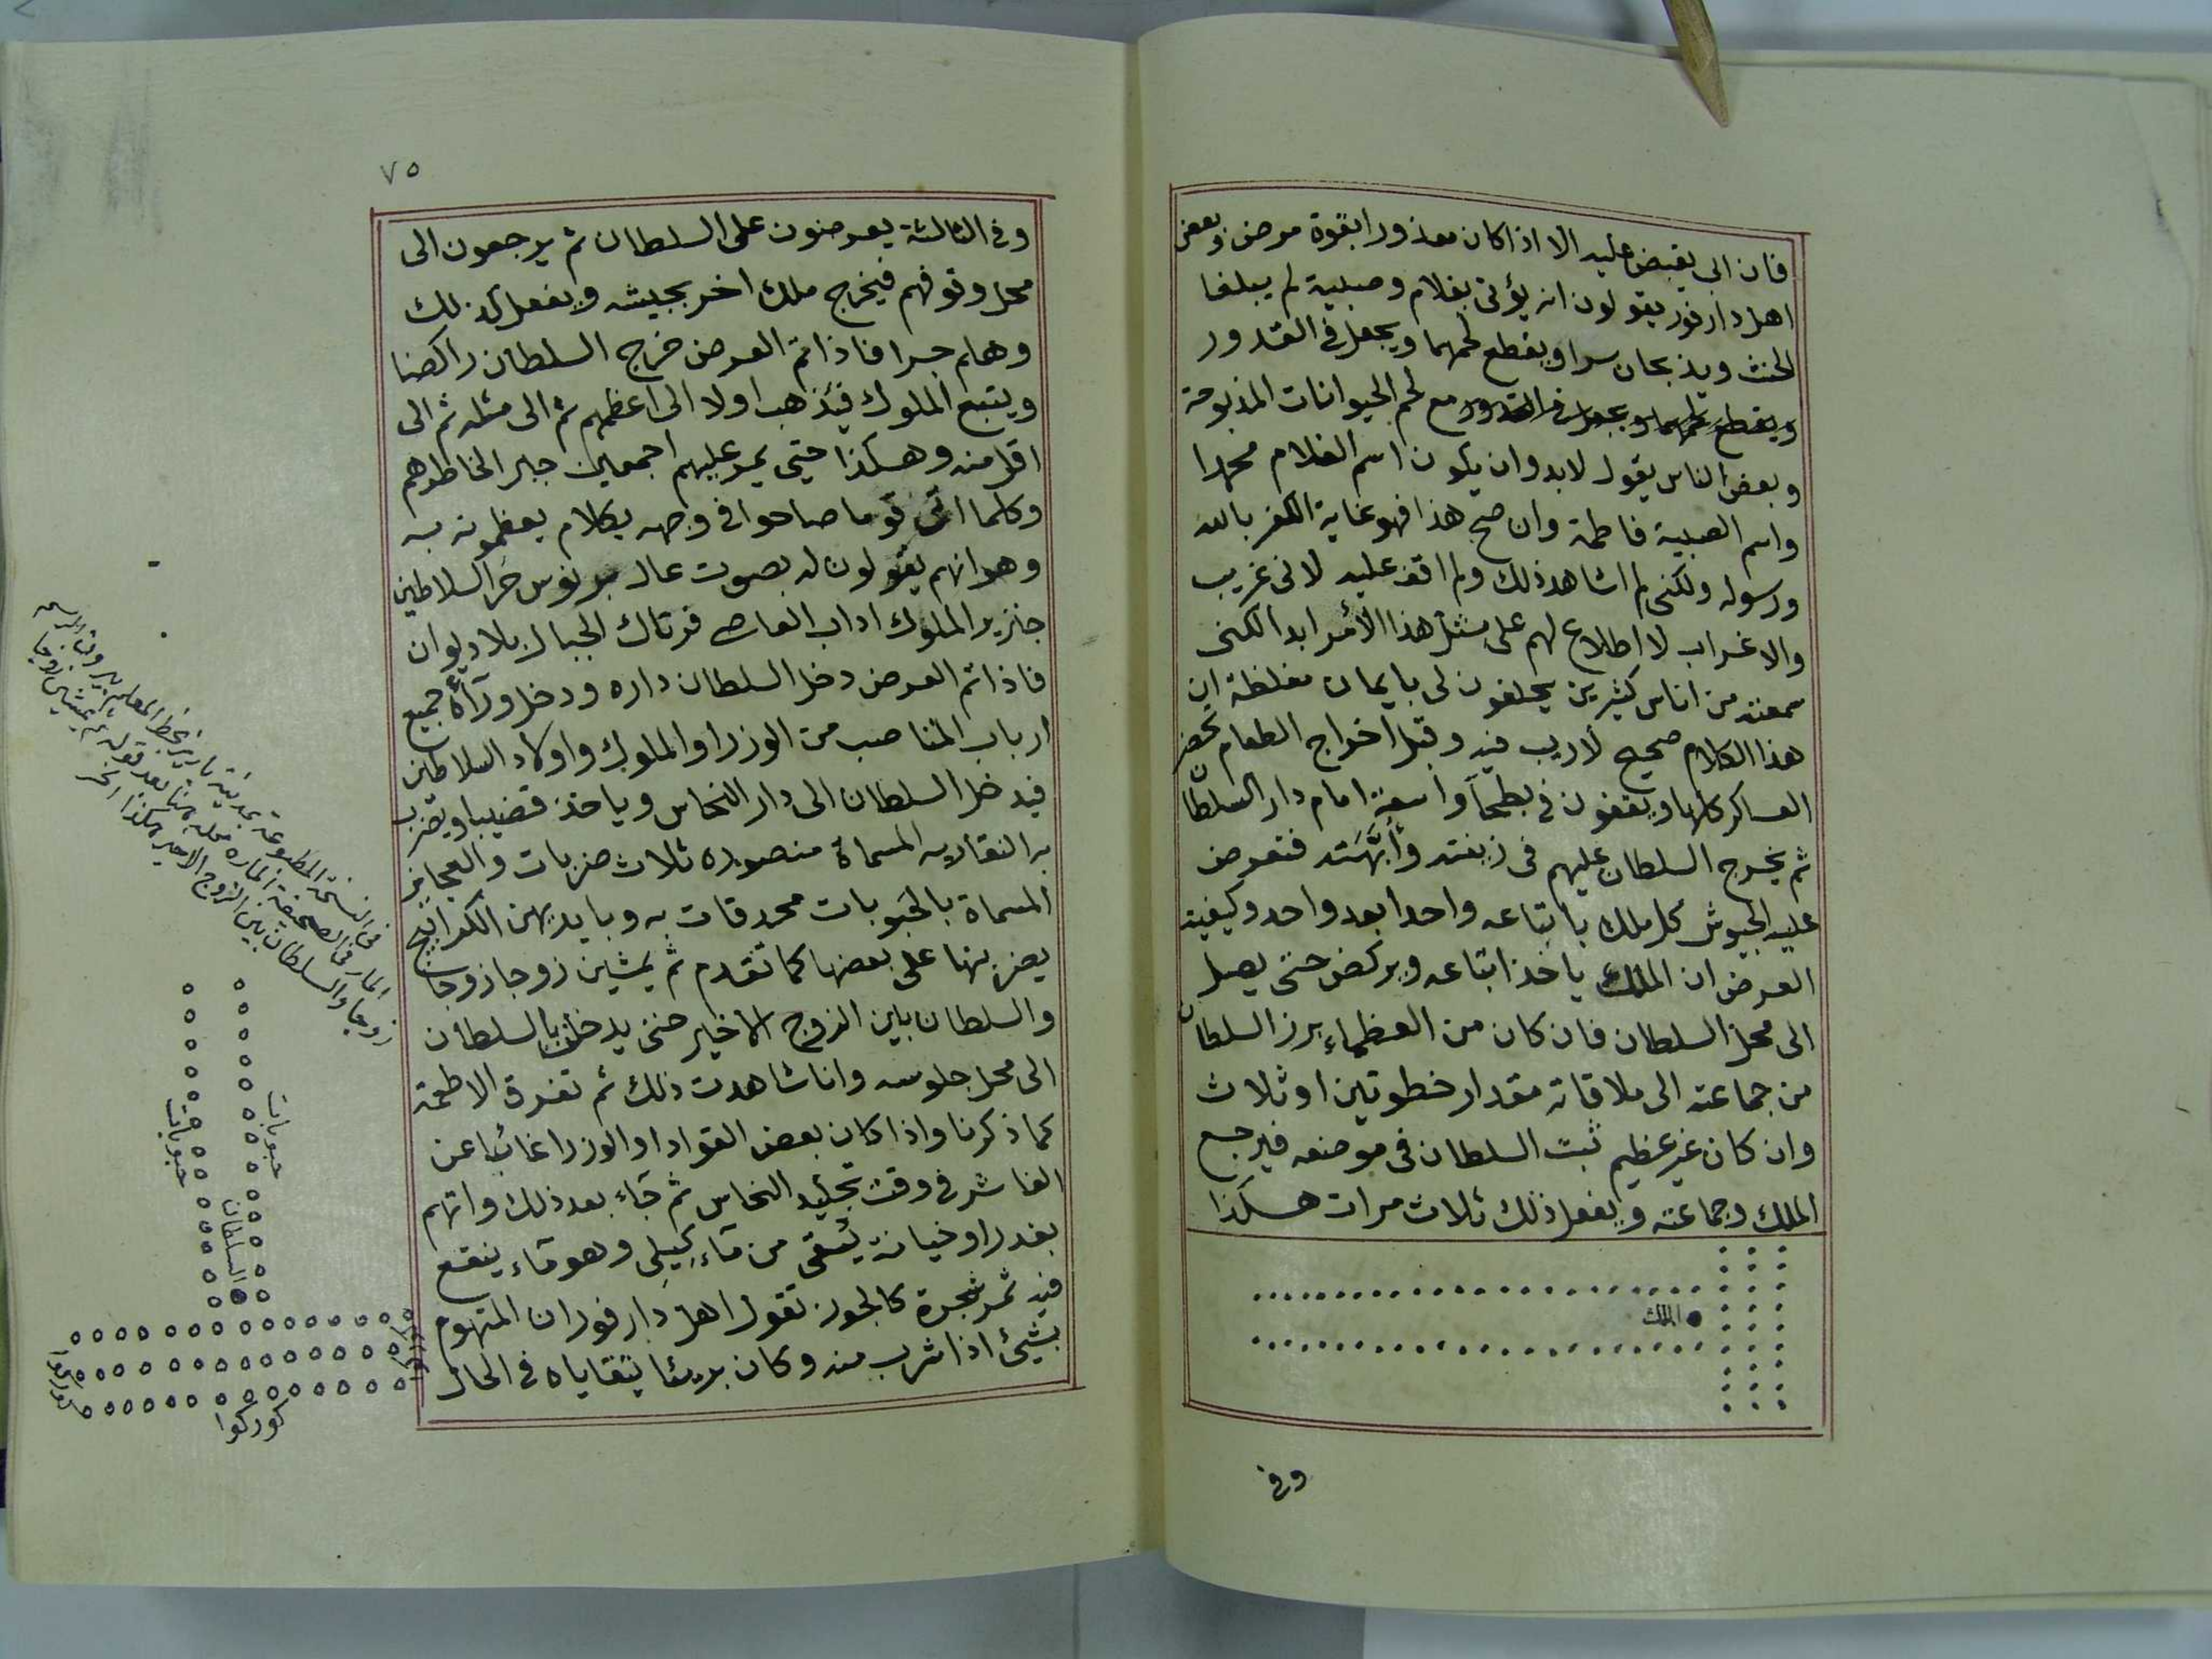 فان ابى يقبض عليه الا اذا كان معذورا بقوة مرض وبعض
اهل دارفور يقولون انه يؤتى بغلام وصبية لم يبلغا
الحنث ويذبحان سرا ويقطع لحمهما ويجعل فى القدور
ويقطع لحمهما ويجعل فى القدور مع لحم الحيوانات المذبوحة
وبعض الناس يقول لابد وان يكون اسم الغلام محمدا
واسم الصبية فاطمة وان صح هذا فهو غاية الكفر بالله
ورسوله ولكنى لم اشاهد ذلك ولم اقف عليه لانى غريب
والاغراب لا اطلاع لهم على مثل هذا الأمر ابدا لكنى
سمعته من اناس كثيرين يحلفون لى بايمان مغلظة ان
هذا الكلام صحيح لا ريب فيه وقبل اخراج الطعام تحضر
العساكر كلها ويقفون فى بطحآ واسعة امام دار السلطان
ثم يخرج السلطان عليهم فى زينته وأبَّهَته فتعرض
عليه الجيوش كل ملك باتباعه واحدا بعد واحد وكيفية
العرض ان الملك ياخذ اتباعه ويركض حتى يصل
الى محل السلطان فان كان من العظماء برز السلطان
من جماعته الى ملاقاته مقدار خطوتين او ثلاث
وان كان غير عظيم ثبت السلطان فى موضعه فيرجع
الملك وجماعته ويفعل ذلك ثلاث مرات هكذا
الملك
وفى
٧٥
وفى الثالثة يعرضون على السلطان ثم يرجعون الى
محل وقوفهم فيخرج ملك اخر بجيشه ويفعل كذلك
وهلم جرا فاذا تم العرض خرج السلطان راكضا
ويتبع الملوك فيذهب اولا الى اعظمهم ثم الى مثله ثم الى
اقل منه وهكذا حتى يمر عليهم اجمعين جبرا لخاطرهم
وكلما اتى قوما صاحوا فى وجهه بكلام يعظمونه به
وهو انهم يقولون له بصوت عال برنوس حر السلاطين
جنزير الملوك اداب العاصى فرتاك الجبال بلا ديوان
فاذا تم العرض دخل السلطان داره ودخل ورآءه جميع
ارباب المناصب من الوزرا والملوك واولاد السلاطين
فيدخل السلطان الى دار النحاس وياخذ قضيبا ويضرب
به النقاريه المسماة منصوره ثلاث ضربات والعجايز
المسماة بالحبوبات محدقات به وبايديهن الكرابيج
يضربنها على بعضها كما تقدم ثم يمشين زوجا زوجا
والسلطان باين الزوج الاخير حتى يدخلن بالسلطان
الى محل جلوسه وانا شاهدت ذلك ثم تفرق الاطعمة
كما ذكرنا واذا كان بعض القواد او الوزرا غائبا عن
الفاشر فى وقت تجليد النحاس ثم جآء بعد ذلك واتهم
بغدر او خيانة يُسقى من مآء كيلى وهو مآء ينقع
فيه ثمر شجرة كالجوز تقول اهل دارفور ان المتهوم
بشيئ اذا شرب منه وكان بريئا يتقاياه فى الحال
فى النسخة المطبوعة بمدينة باريز بخط المعلم
المار فى الصحيفة المارة محله هنا بعد قوله ثم يمشين زوجا
زوجا والسلطان بين الزوج الاخير هكذا الخ
حبوبات
حبوبات
السلطان
كوركوا
كوركوا